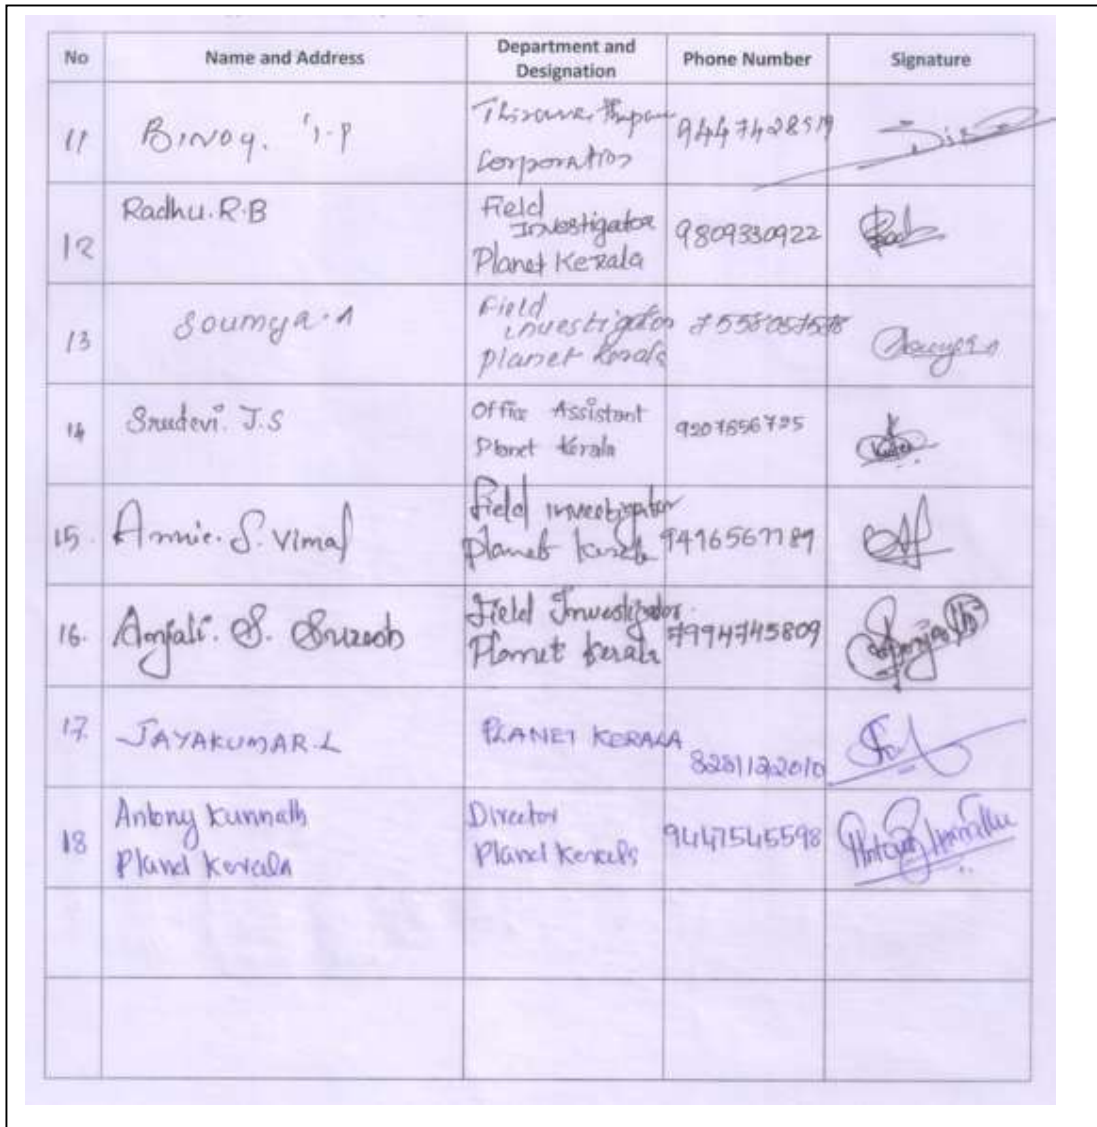 No Name and Address Department and Designation Phone Number Signature
11 Binoy. Corporation
12 Radhu.R.B Field Investigator Planet Kerala 9809330922
13 Soumya.A Field investigator planet Kerala
14 Sreedevi. J.S Office Assistant Planet Kerala
15. Annie. S. Vimal Field investigator Planet Kerala
16. Anjali. S. Suresh Field Investigator Planet Kerala 7994745809
17. JAYAKUMAR.L PLANET KERALA
18 Antony Kunnath Planet Kerala Director Planet Kerala 9447545598